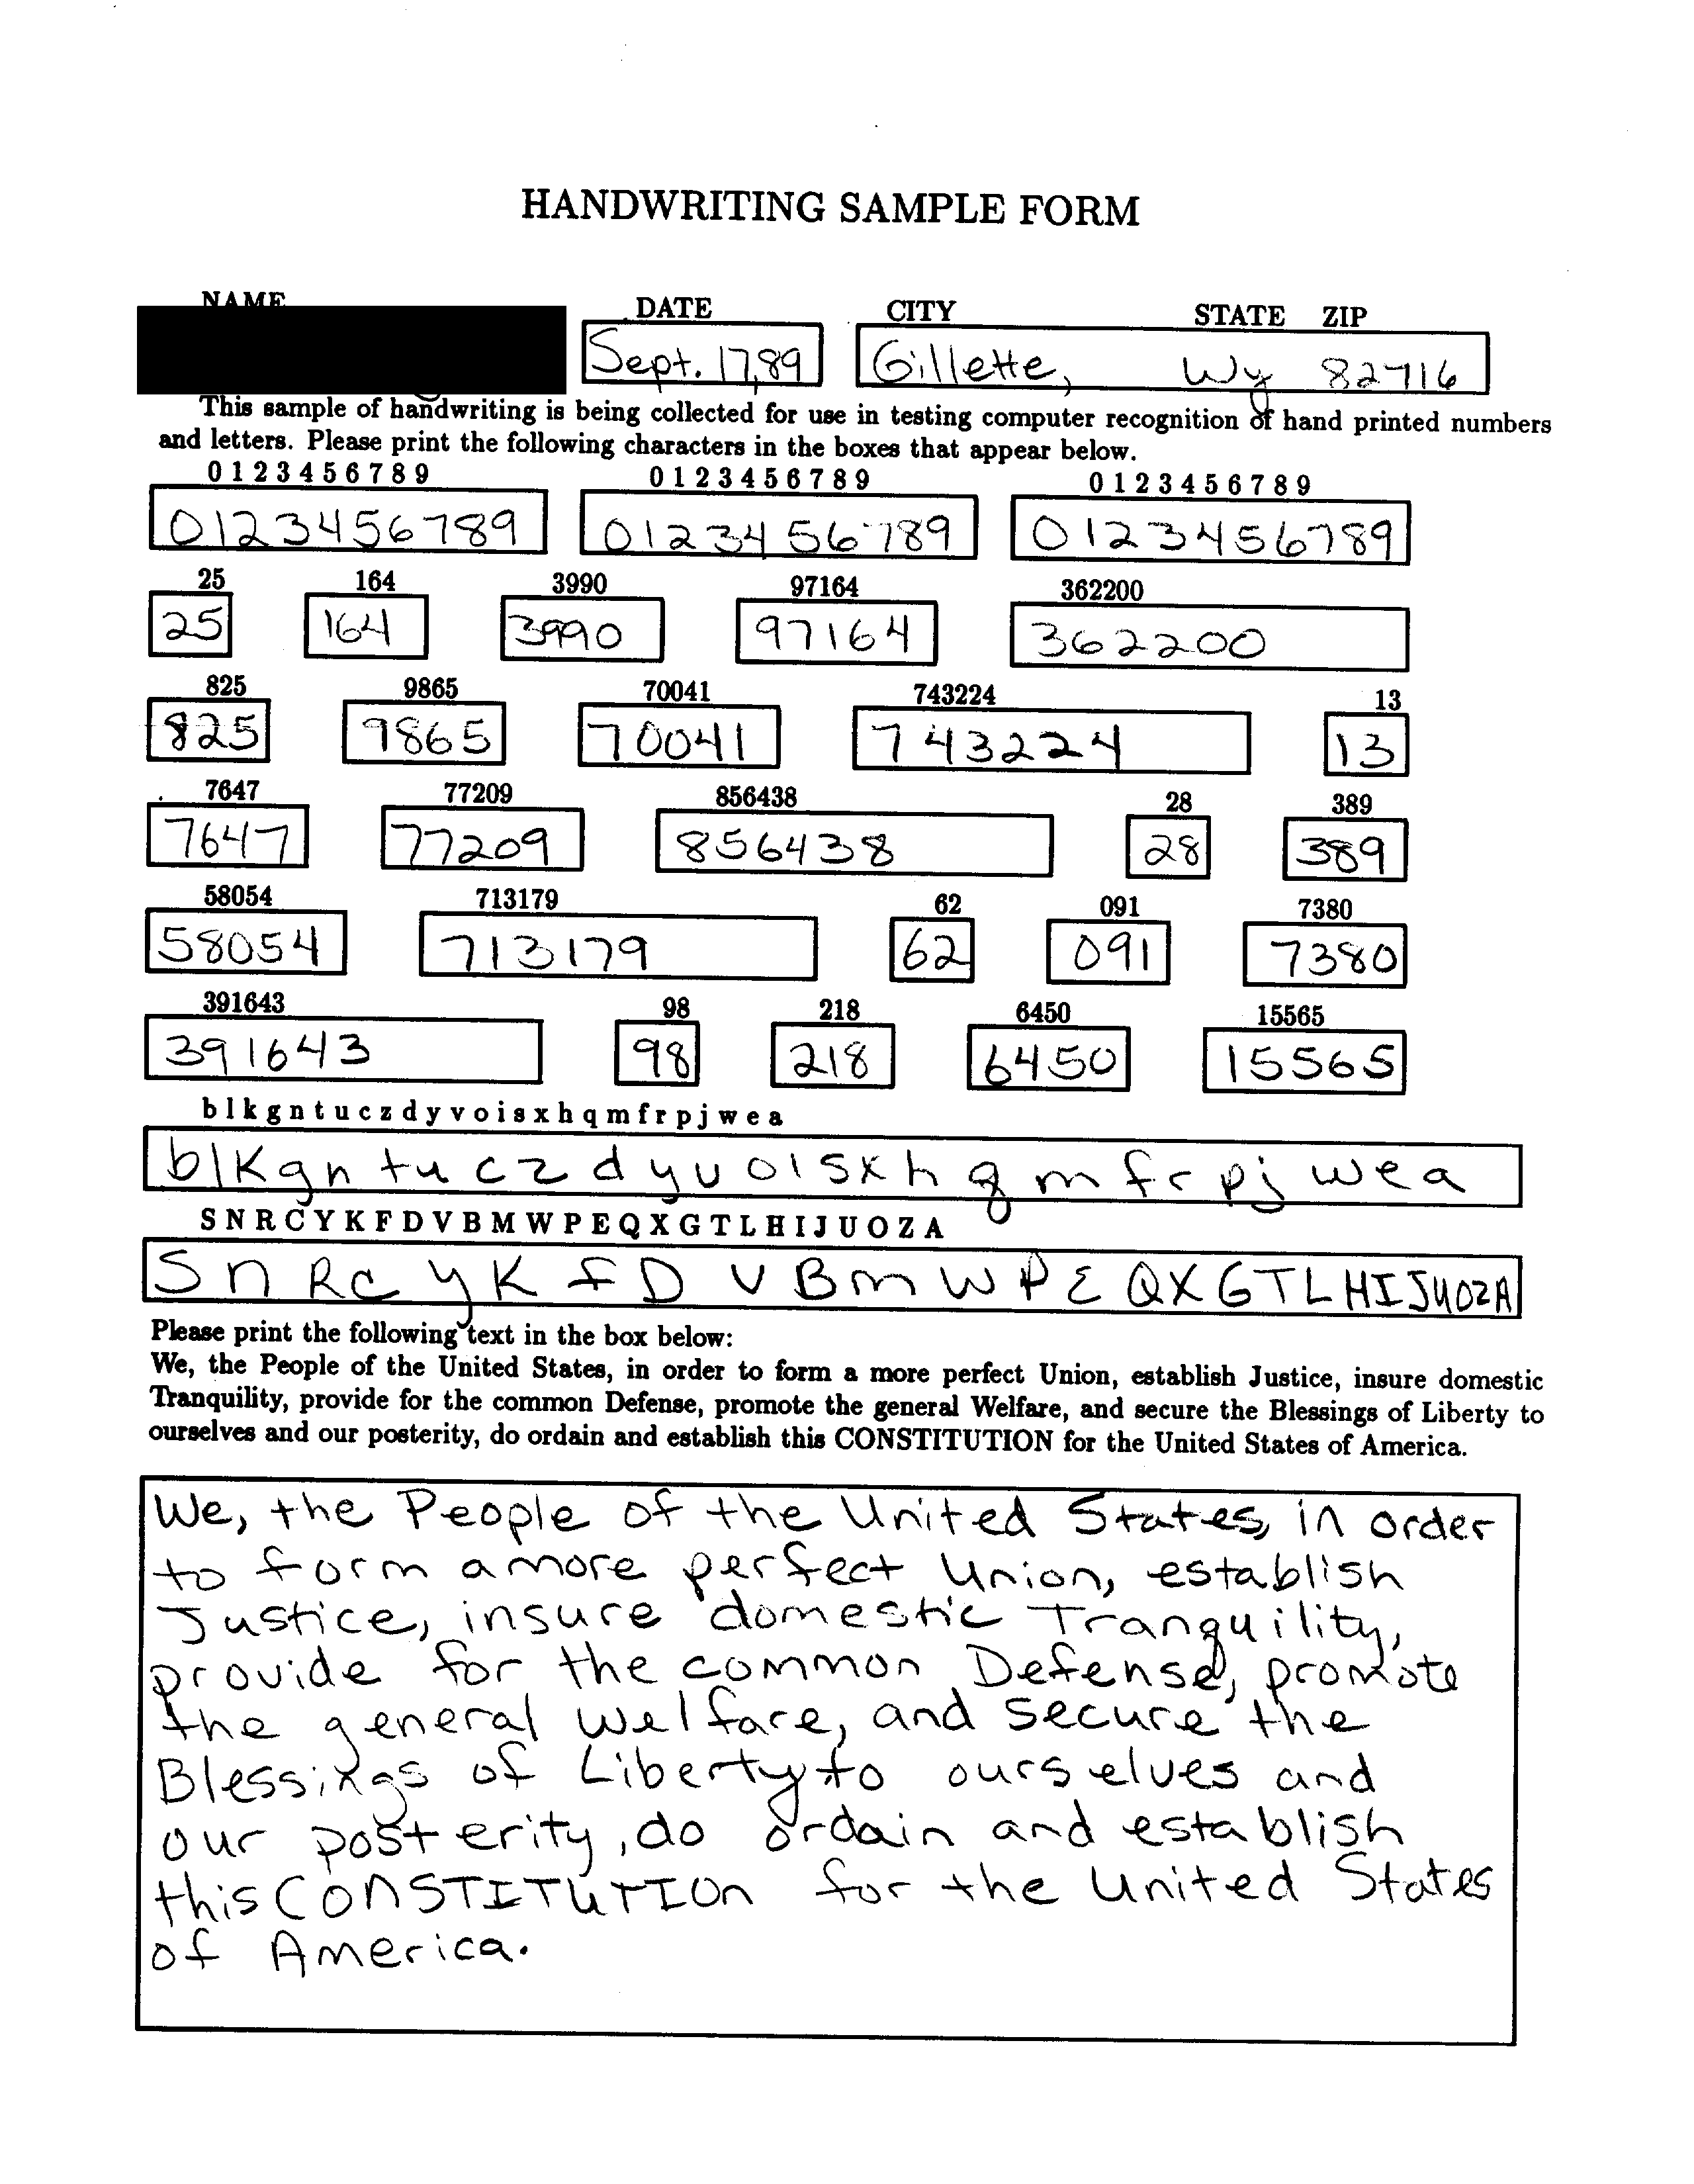 HANDWRITING SAMPLE FORM
NAME DATE CITY STATE ZIP
Sept. 17,89 Gillette, Wy 82716
This sample of handwriting is being collected for use in testing computer recognition of hand printed numbers
and letters. Please print the following characters in the boxes that appear below.
0 1 2 3 4 5 6 7 8 9 0 1 2 3 4 5 6 7 8 9 0 1 2 3 4 5 6 7 8 9
0123456789 0123456789 0123456789
25 164 3990 97164 362200
25 164 3990 97164 362200
825 9865 70041 743224 13
825 9865 70041 743224 13
7647 77209 856438 28 389
7647 77209 856438 28 389
58054 713179 62 091 7380
58054 713179 62 091 7380
391643 98 218 6450 15565
391643 98 218 6450 15565
b l k g n t u c z d y v o i s x h q m f r p j w e a
b l K g n t u c z d y v o i s x h q m f r p j w e a
S N R C Y K F D V B M W P E Q X G T L H I J U O Z A
S n R C y K f D V B m W P E Q X G T L H I J U O Z A
Please print the following text in the box below:
We, the People of the United States, in order to form a more perfect Union, establish Justice, insure domestic
Tranquility, provide for the common Defense, promote the general Welfare, and secure the Blessings of Liberty to
ourselves and our posterity, do ordain and establish this CONSTITUTION for the United States of America.
We, the People of the United States, in order
to form a more perfect Union, establish
Justice, insure domestic Tranquility,
provide for the common Defense, promote
the general Welfare, and secure the
Blessings of Liberty to ourselves and
our posterity, do ordain and establish
this CONSTITUTION for the United States
of America.